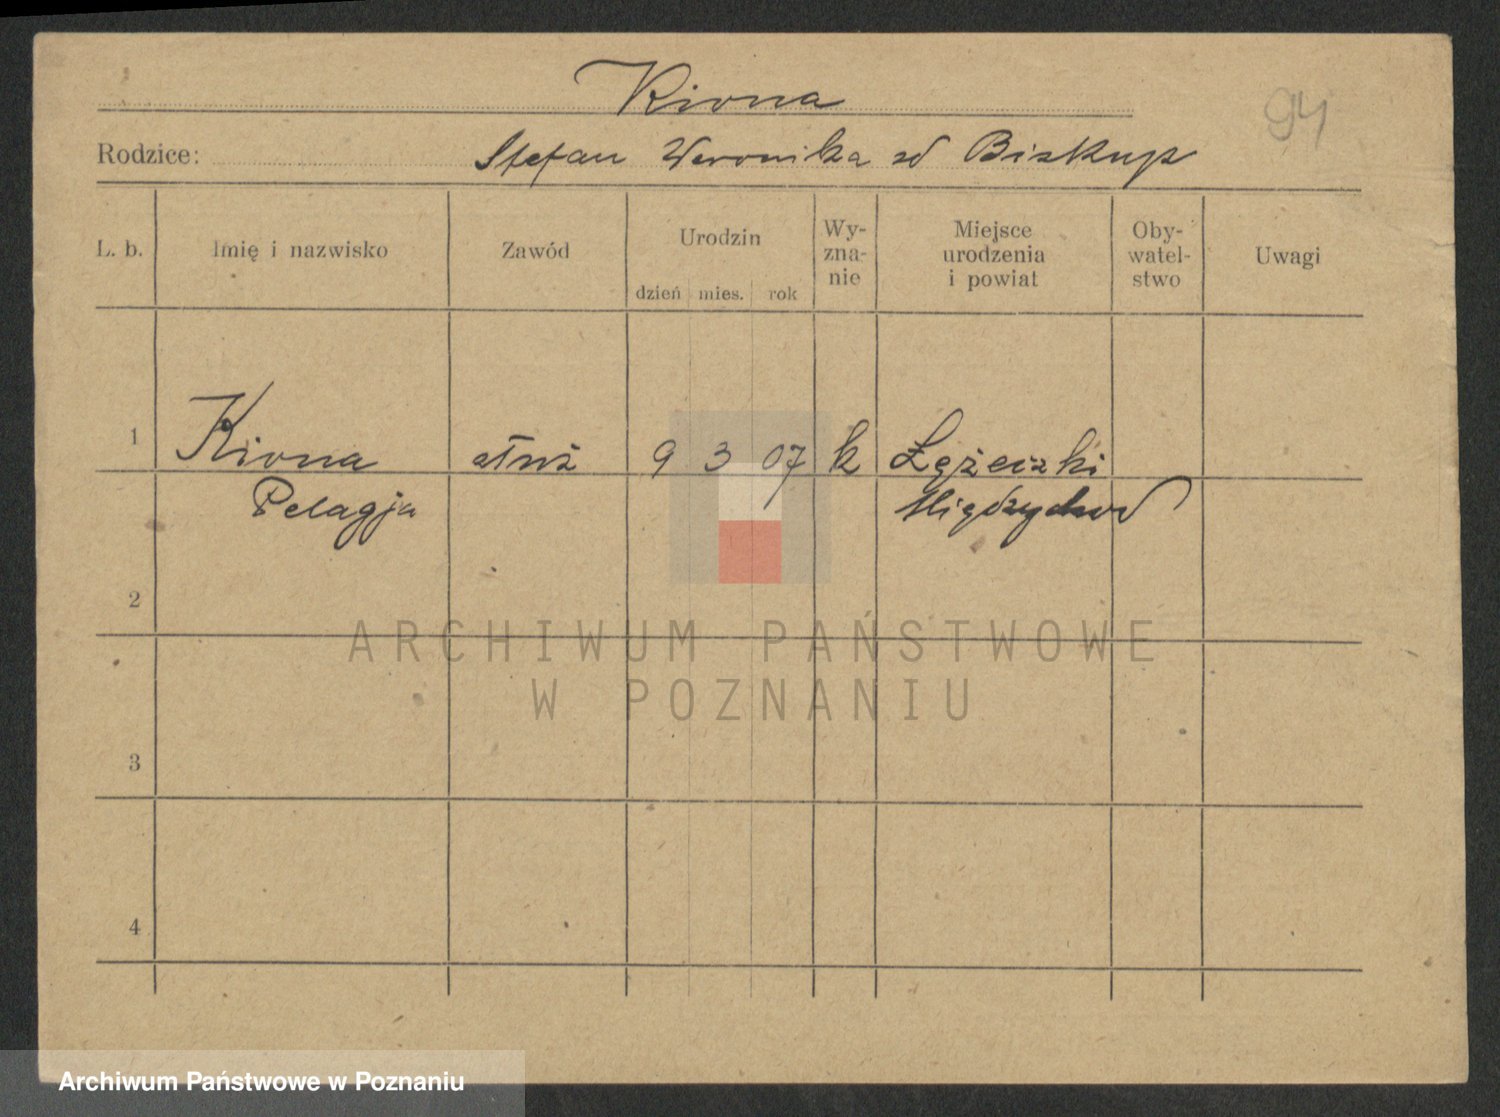 Kirona
94
Rodzice: Stefan Weronika zd Biskup
L. b. Imię i nazwisko Zawód Urodzin dzień mies. rok Wy-zna-nie Miejsce urodzenia i powiat Oby-watel-stwo Uwagi
1 Kirona służ 9 3 07 k Łężeczki
Pelagja Międzychod
2
ARCHIWUM PAŃSTWOWE
W POZNANIU
3
4
Archiwum Państwowe w Poznaniu